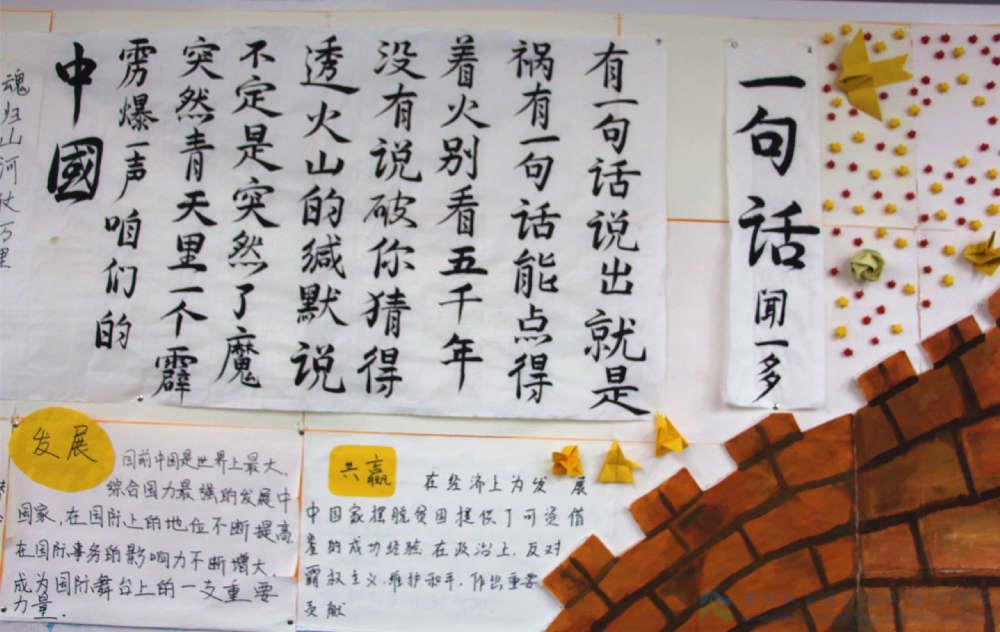 一句话
闻一多
有一句话说出就是
祸有一句话能点得
着火别看五千年
没有说破你猜得
透火山的缄默说
不定是突然了魔
突然青天里一个霹
雳爆一声咱们的
中國
魂归山河仗万里
发展
目前中国是世界上最大、
综合国力最强的发展中
国家,在国际上的地位不断提高
在国际事务的影响力不断增大、
成为国际舞台上的一支重要
力量.
共赢
在经济上为发展
中国家摆脱贫困提供了可资借
鉴的成功经验 在政治上,反对
霸权主义,维护和平,作出重要
贡献